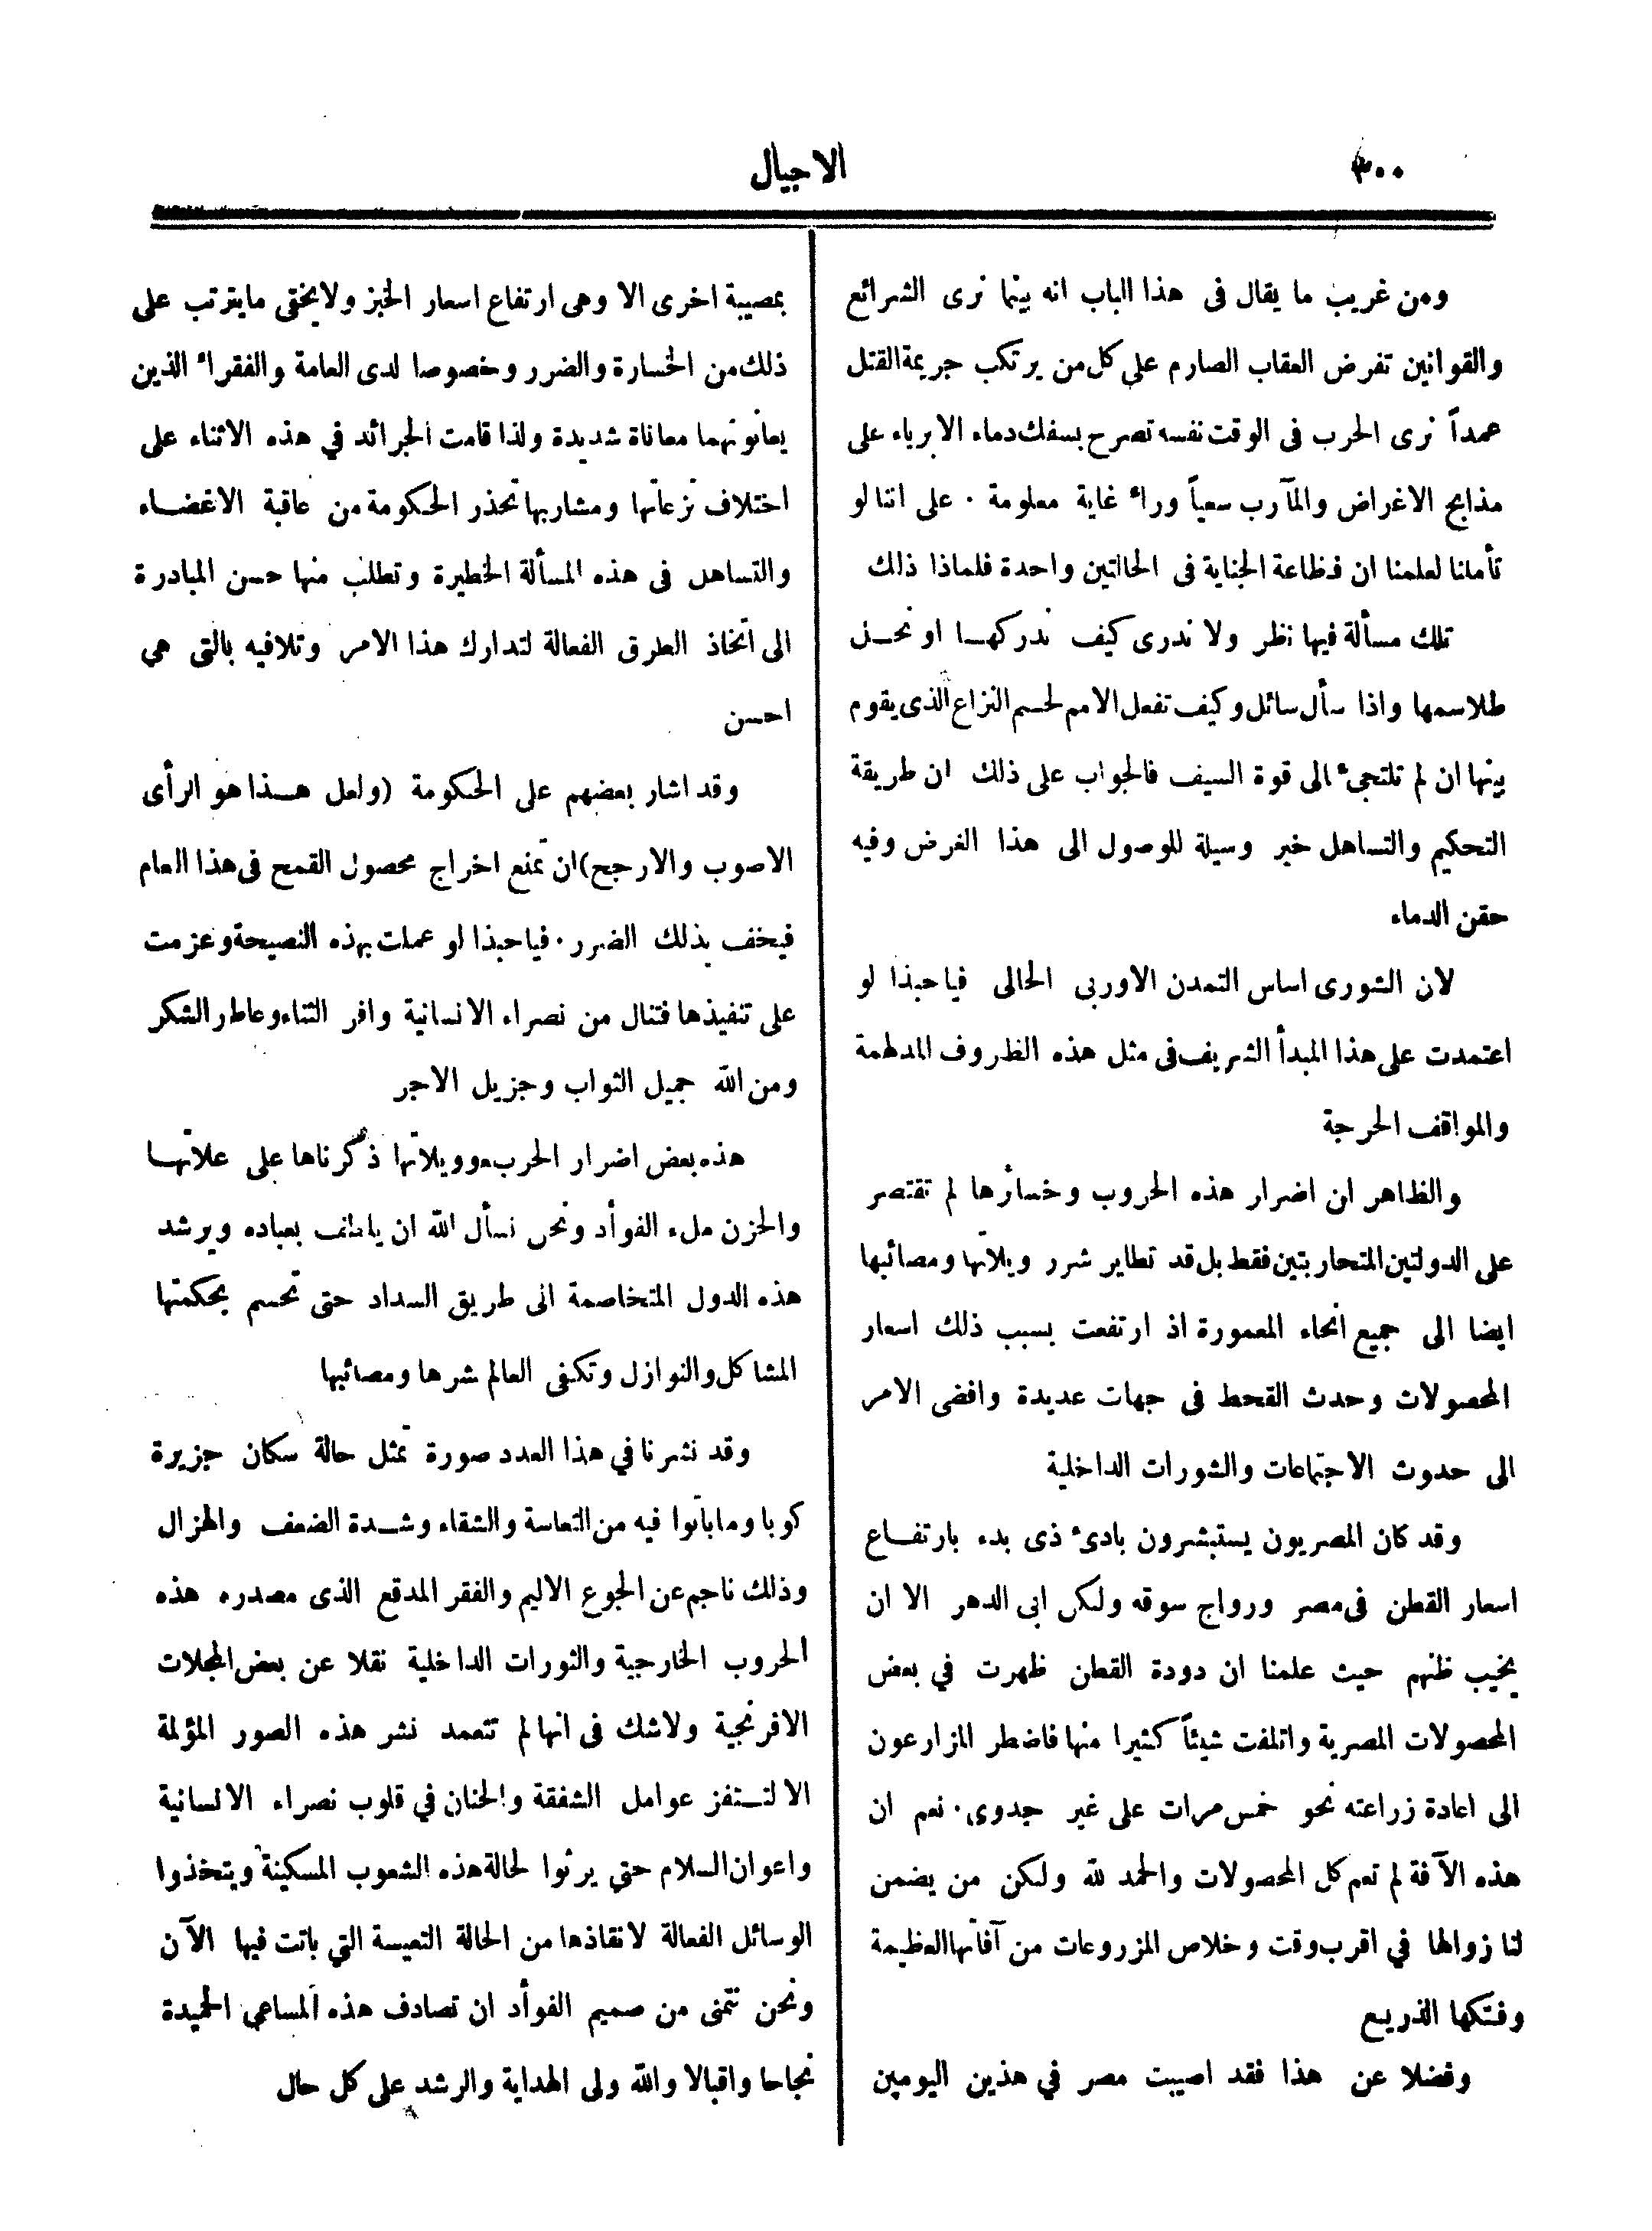 ٣٠٠
الاجيال
ومن غريب ما يقال فى هذا الباب انه بينما نرى الشرائع
والقوانين تفرض العقاب الصارم على كل من يرتكب جريمة القتل
عمداً نرى الحرب فى الوقت نفسه تصرح بسفك دماء الابرياء على
مذابح الاغراض والمآرب سعياً وراء غاية معلومة . على اننا لو
تأملنا لعلمنا ان فظاعة الجناية فى الحالتين واحدة فلماذا ذلك
تلك مسألة فيها نظر ولا ندرى كيف ندركها او نحل
طلاسمها واذا سأل سائل وكيف تفعل الامم لحسم النزاع الذى يقوم
بينها ان لم تلتجىء الى قوة السيف فالجواب على ذلك ان طريقة
التحكيم والتساهل خير وسيلة للوصول الى هذا الغرض وفيه
حقن الدماء
لان الشورى اساس التمدن الاوربى الحالى فيا حبذا لو
اعتمدت على هذا المبدأ الشريف فى مثل هذه الظروف المدلهمة
والمواقف الحرجة
والظاهر ان اضرار هذه الحروب وخسائرها لم تقتصر
على الدولتين المتحاربتين فقط بل قد تطاير شرر ويلاتها ومصائبها
ايضا الى جميع انحاء المعمورة اذ ارتفعت بسبب ذلك اسعار
المحصولات وحدث القحط فى جهات عديدة وافضى الامر
الى حدوث الاجتماعات والثورات الداخلية
وقد كان المصريون يستبشرون بادىء ذى بدء بارتفاع
اسعار القطن فى مصر ورواج سوقه ولكن ابى الدهر الا ان
يخيب ظنهم حيث علمنا ان دودة القطن ظهرت في بعض
المحصولات المصرية واتلفت شيئاً كثيرا منها فاضطر المزارعون
الى اعادة زراعته نحو خمس مرات على غير جدوى . نعم ان
هذه الآفة لم تعم كل المحصولات والحمد لله ولكن من يضمن
لنا زوالها في اقرب وقت وخلاص المزروعات من آفاتها العظيمة
وفتكها الذريع
وفضلا عن هذا فقد اصيبت مصر في هذين اليومين
بمصيبة اخرى الا وهى ارتفاع اسعار الخبز ولا يخفى ما يترتب على
ذلك من الخسارة والضرر وخصوصا لدى العامة والفقراء الذين
يعانونهما معاناة شديدة ولذا قامت الجرائد في هذه الاثناء على
اختلاف نزعاتها ومشاربها تحذر الحكومة من عاقبة الاغضاء
والتساهل فى هذه المسألة الخطيرة وتطلب منها حسن المبادرة
الى اتخاذ الطرق الفعالة لتدارك هذا الامر وتلافيه بالتى هي
احسن
وقد اشار بعضهم على الحكومة (ولعل هذا هو الرأى
الاصوب والارجح) ان تمنع اخراج محصول القمح فى هذا العام
فيخف بذلك الضرر . فيا حبذا لو عملت بهذه النصيحة وعزمت
على تنفيذها فتنال من نصراء الانسانية وافر الثناء وعاطر الشكر
ومن الله جميل الثواب وجزيل الاجر
هذه بعض اضرار الحرب وويلاتها ذكرناها على علاتها
والحزن ملء الفوأد ونحن نسأل الله ان يلطف بعباده ويرشد
هذه الدول المتخاصمة الى طريق السداد حتى تحسم بحكمتها
المشاكل والنوازل وتكفى العالم شرها ومصائبها
وقد نشرنا في هذا العدد صورة تمثل حالة سكان جزيرة
كوبا وما باتوا فيه من التعاسة والشقاء وشدة الضعف والهزال
وذلك ناجم عن الجوع الاليم والفقر المدقع الذى مصدره هذه
الحروب الخارجية والثورات الداخلية نقلا عن بعض المجلات
الافرنجية ولاشك فى انها لم تتعمد نشر هذه الصور المؤلمة
الا لتستفز عوامل الشفقة والحنان في قلوب نصراء الانسانية
واعوان السلام حتي يرثوا لحالة هذه الشعوب المسكينة ويتخذوا
الوسائل الفعالة لانقاذها من الحالة التعيسة التي باتت فيها الآن
ونحن نتمنى من صميم الفوأد ان تصادف هذه المساعي الحميدة
نجاحا واقبالا والله ولى الهداية والرشد على كل حال